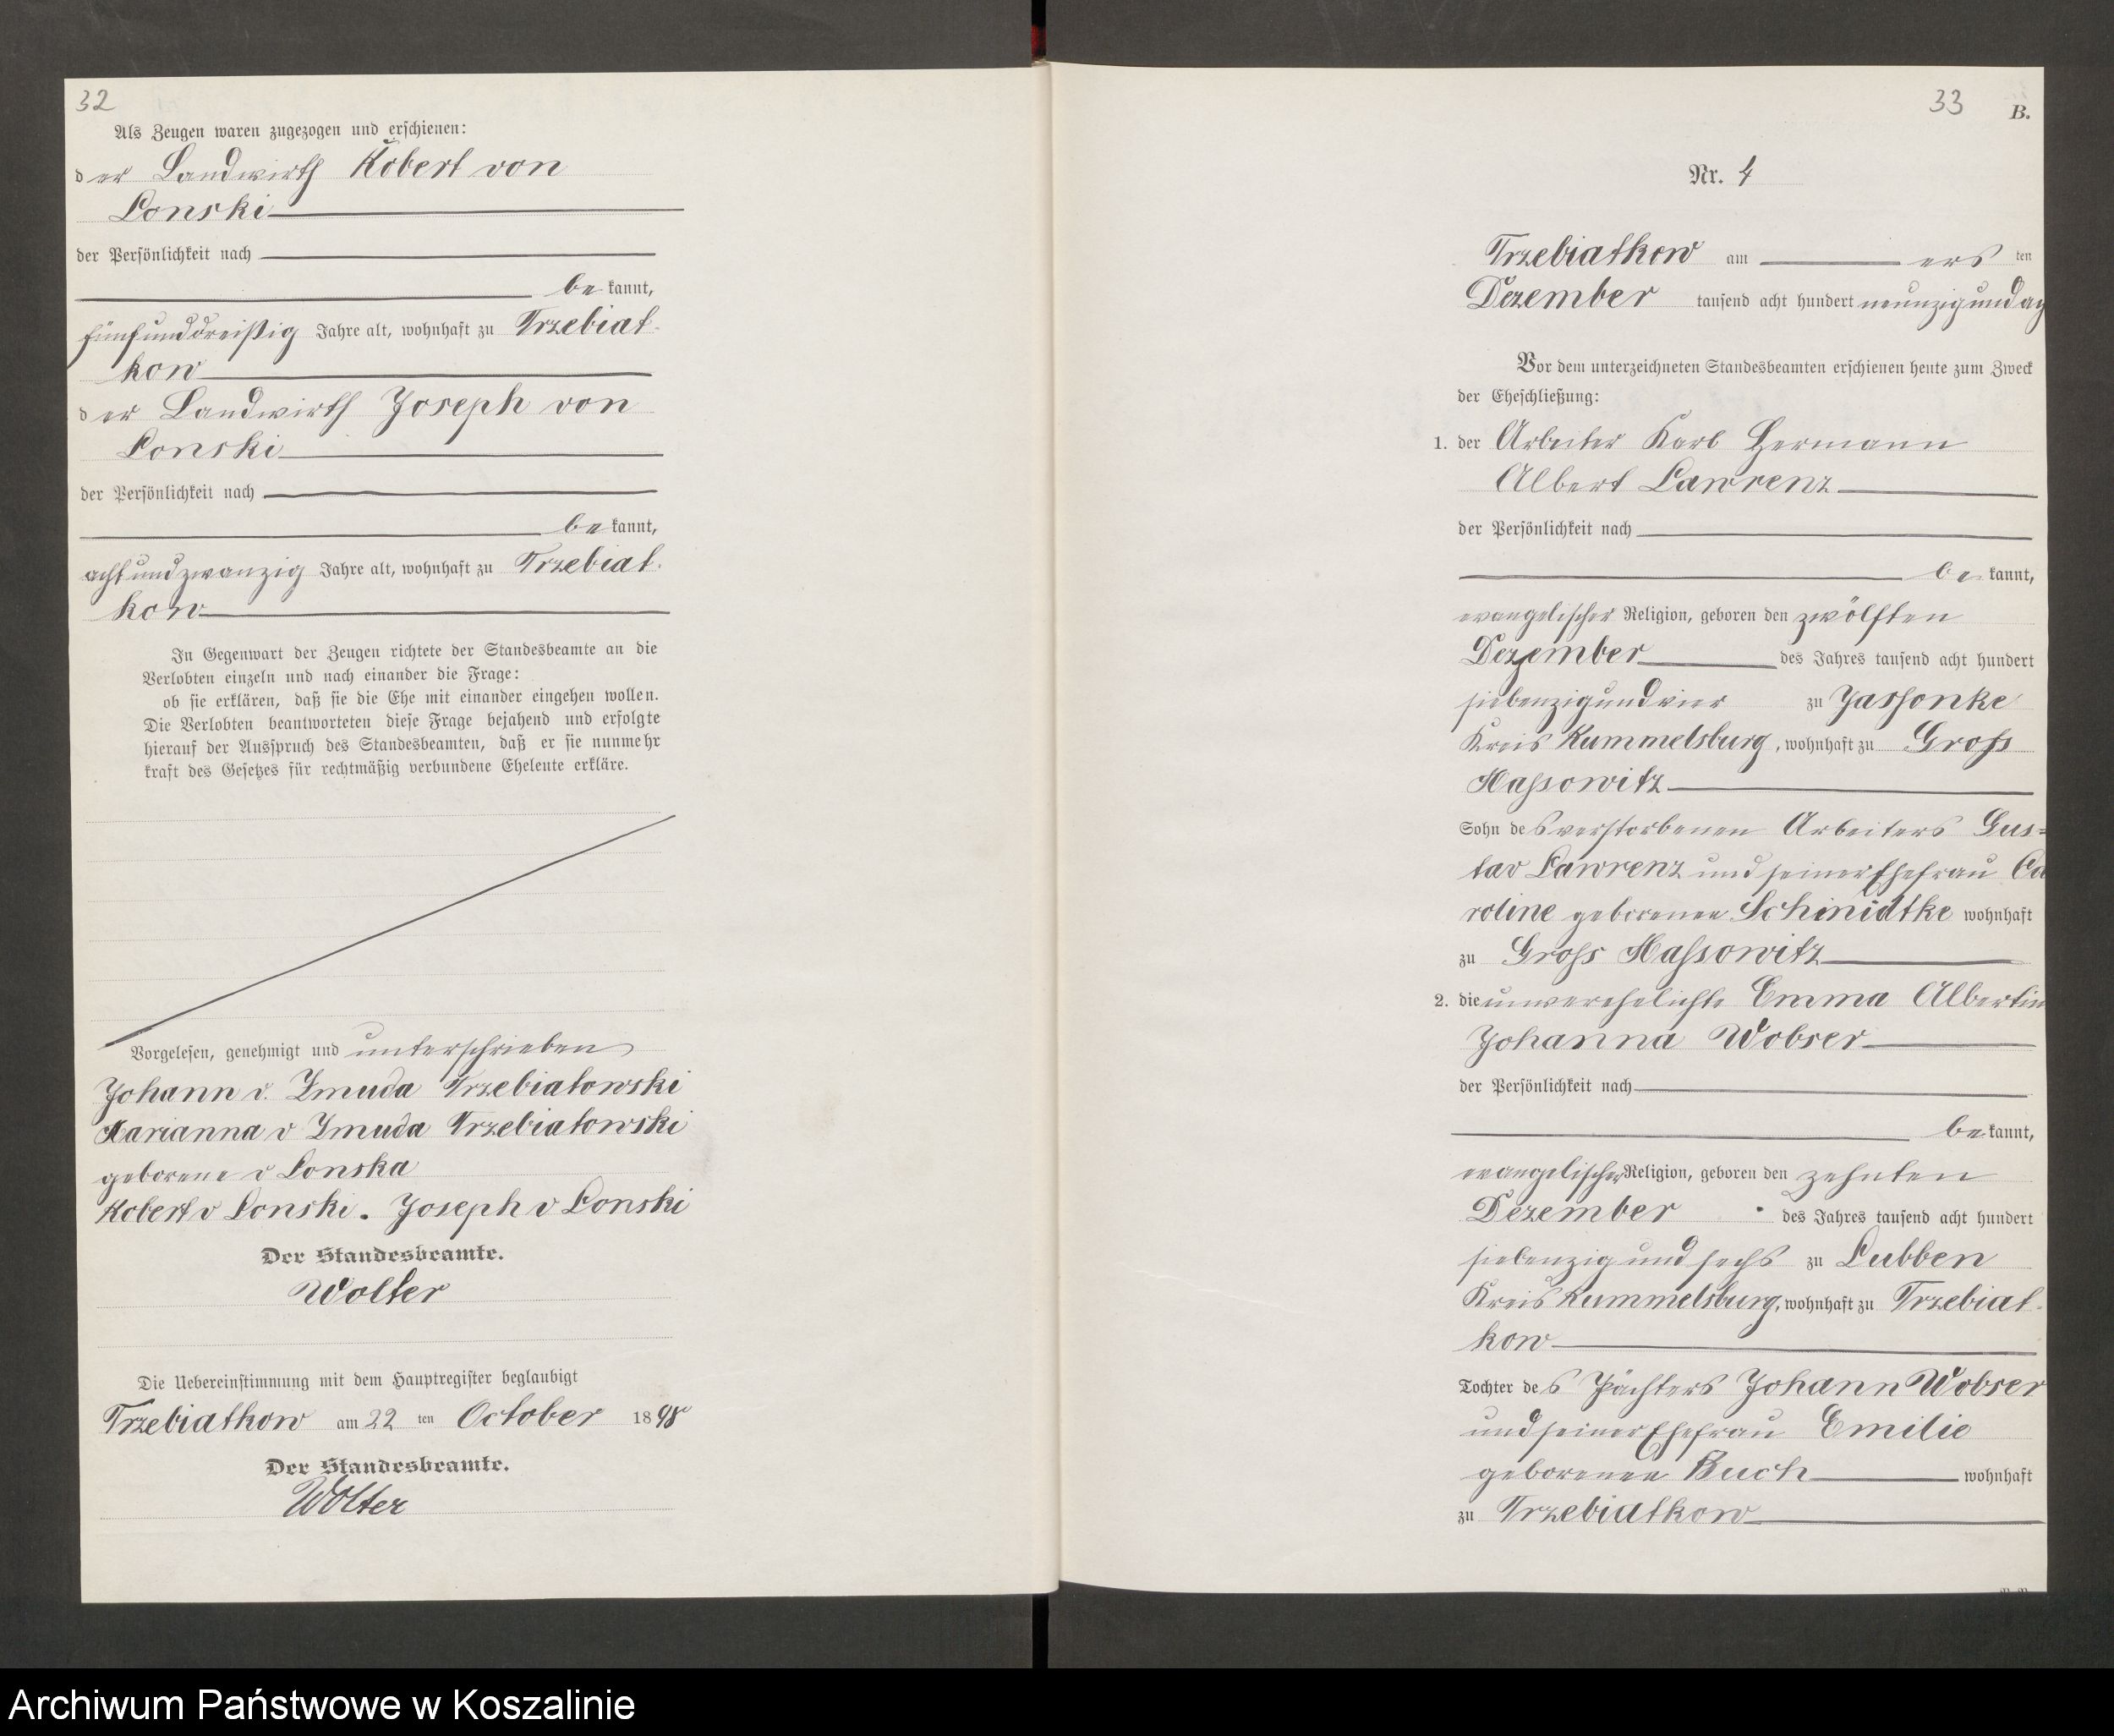 32
Als Zeugen waren zugezogen und erschienen:
der Landwirth Robert von
Lonski
der Persönlichkeit nach
bekannt,
fünfunddreißig Jahre alt, wohnhaft zu Trzebiat-
kow
der Landwirth Joseph von
Lonski
der Persönlichkeit nach
bekannt,
achtundzwanzig Jahre alt, wohnhaft zu Trzebiat-
kow
In Gegenwart der Zeugen richtete der Standesbeamte an die
Verlobten einzeln und nach einander die Frage:
ob sie erklären, daß sie die Ehe mit einander eingehen wollen.
Die Verlobten beantworteten diese Frage bejahend und erfolgte
hierauf der Ausspruch des Standesbeamten, daß er sie nunmehr
kraft des Gesetzes für rechtmäßig verbundene Eheleute erkläre.
Vorgelesen, genehmigt und unterschrieben
Johann v. Zmuda Trzebiatowski
Marianna v Zmuda Trzebiatowski
geborene v Lonska
Robert v Lonski. Joseph v Lonski
Der Standesbeamte.
Wolter
Die Uebereinstimmung mit dem Hauptregister beglaubigt
Trzebiatkow am 22 ten October 1898
Der Standesbeamte.
Wolter
33
B.
Nr. 4
Trzebiatkow am ersten
Dezember tausend acht hundert neunzigundac
Vor dem unterzeichneten Standesbeamten erschienen heute zum Zweck
der Eheschließung:
1. der Arbeiter Karl Hermann
Albert Lawrenz
der Persönlichkeit nach
bekannt,
evangelischer Religion, geboren den zwölften
Dezember des Jahres tausend acht hundert
siebenzigundvier zu Jassonke
Kreis Rummelsburg, wohnhaft zu Gross
Massowitz
Sohn des verstorbenen Arbeiters Gus=
tav Lawrenz und seiner Ehefrau Ca
roline geborenen Schmidtke wohnhaft
zu Gross Massowitz
2. die unverehelichte Emma Albertin
Johanna Wobser
der Persönlichkeit nach
bekannt,
evangelischer Religion, geboren den zehnten
Dezember des Jahres tausend acht hundert
siebenzig und sechs zu Lubben
Kreis Rummelsburg, wohnhaft zu Trzebiat-
kow
Tochter des Pächters Johann Wobser
und seiner Ehefrau Emilie
geborenen Buch wohnhaft
zu Trzebiatkow
Archiwum Państwowe w Koszalinie